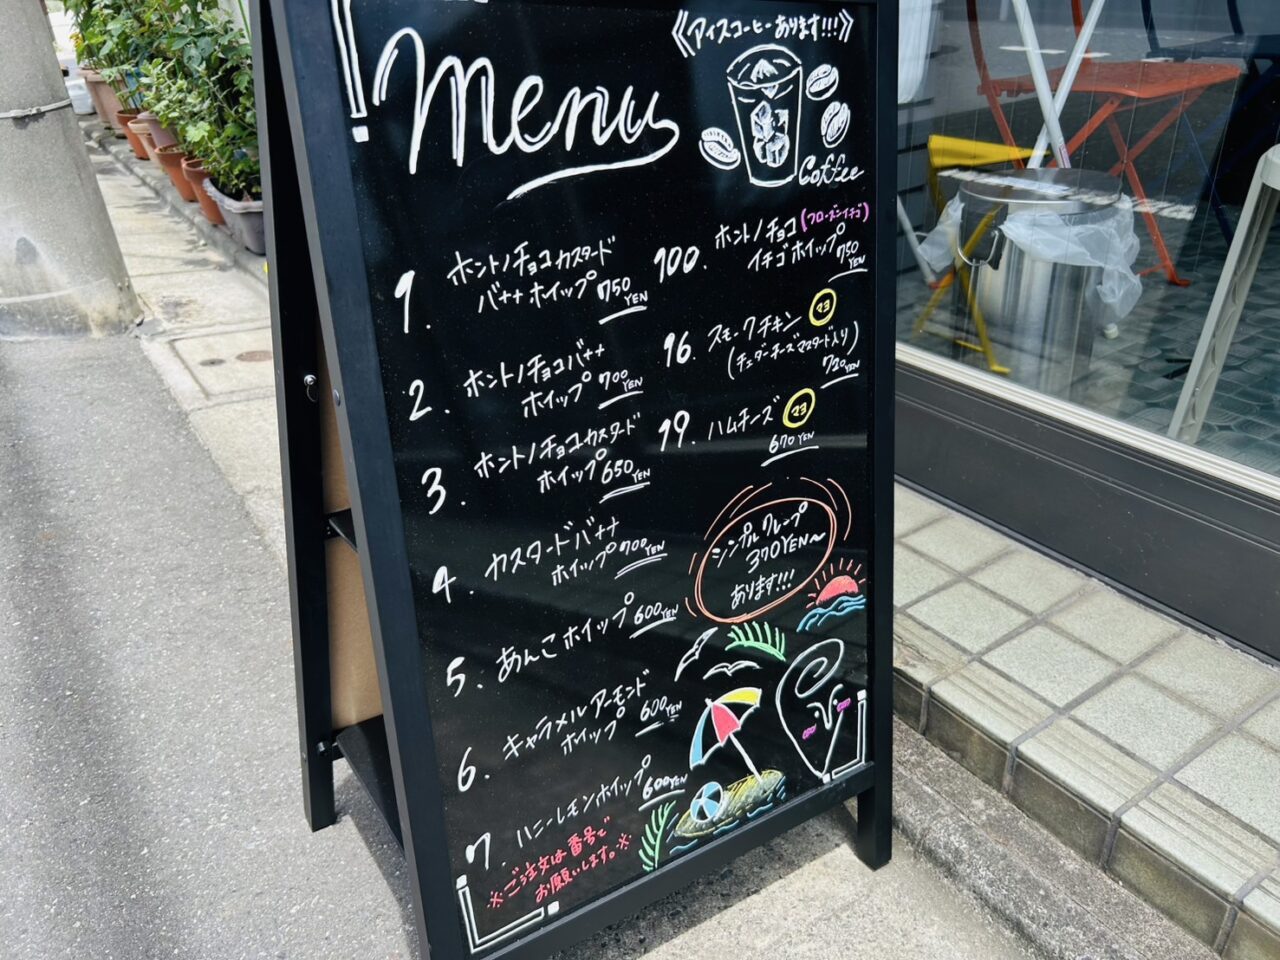 Menu
《アイスコーヒーあります!!!》
Coffee
1. ホントノチョコカスタード
バナナホイップ 750YEN
2. ホントノチョコバナナ
ホイップ 700YEN
3. ホントノチョコカスタード
ホイップ 650YEN
4. カスタードバナナ
ホイップ 700YEN
5. あんこホイップ 600YEN
6. キャラメルアーモンド
ホイップ 600YEN
7. ハニーレモンホイップ 600YEN
※ご注文は番号で
お願いします。※
100. ホントノチョコ(フローズンイチゴ)
イチゴホイップ 750YEN
16. スモークチキン マヨ
(チェダーチーズマスタード入り)
720YEN
19. ハムチーズ マヨ
670YEN
シンプルクレープ
370YEN〜
あります!!!